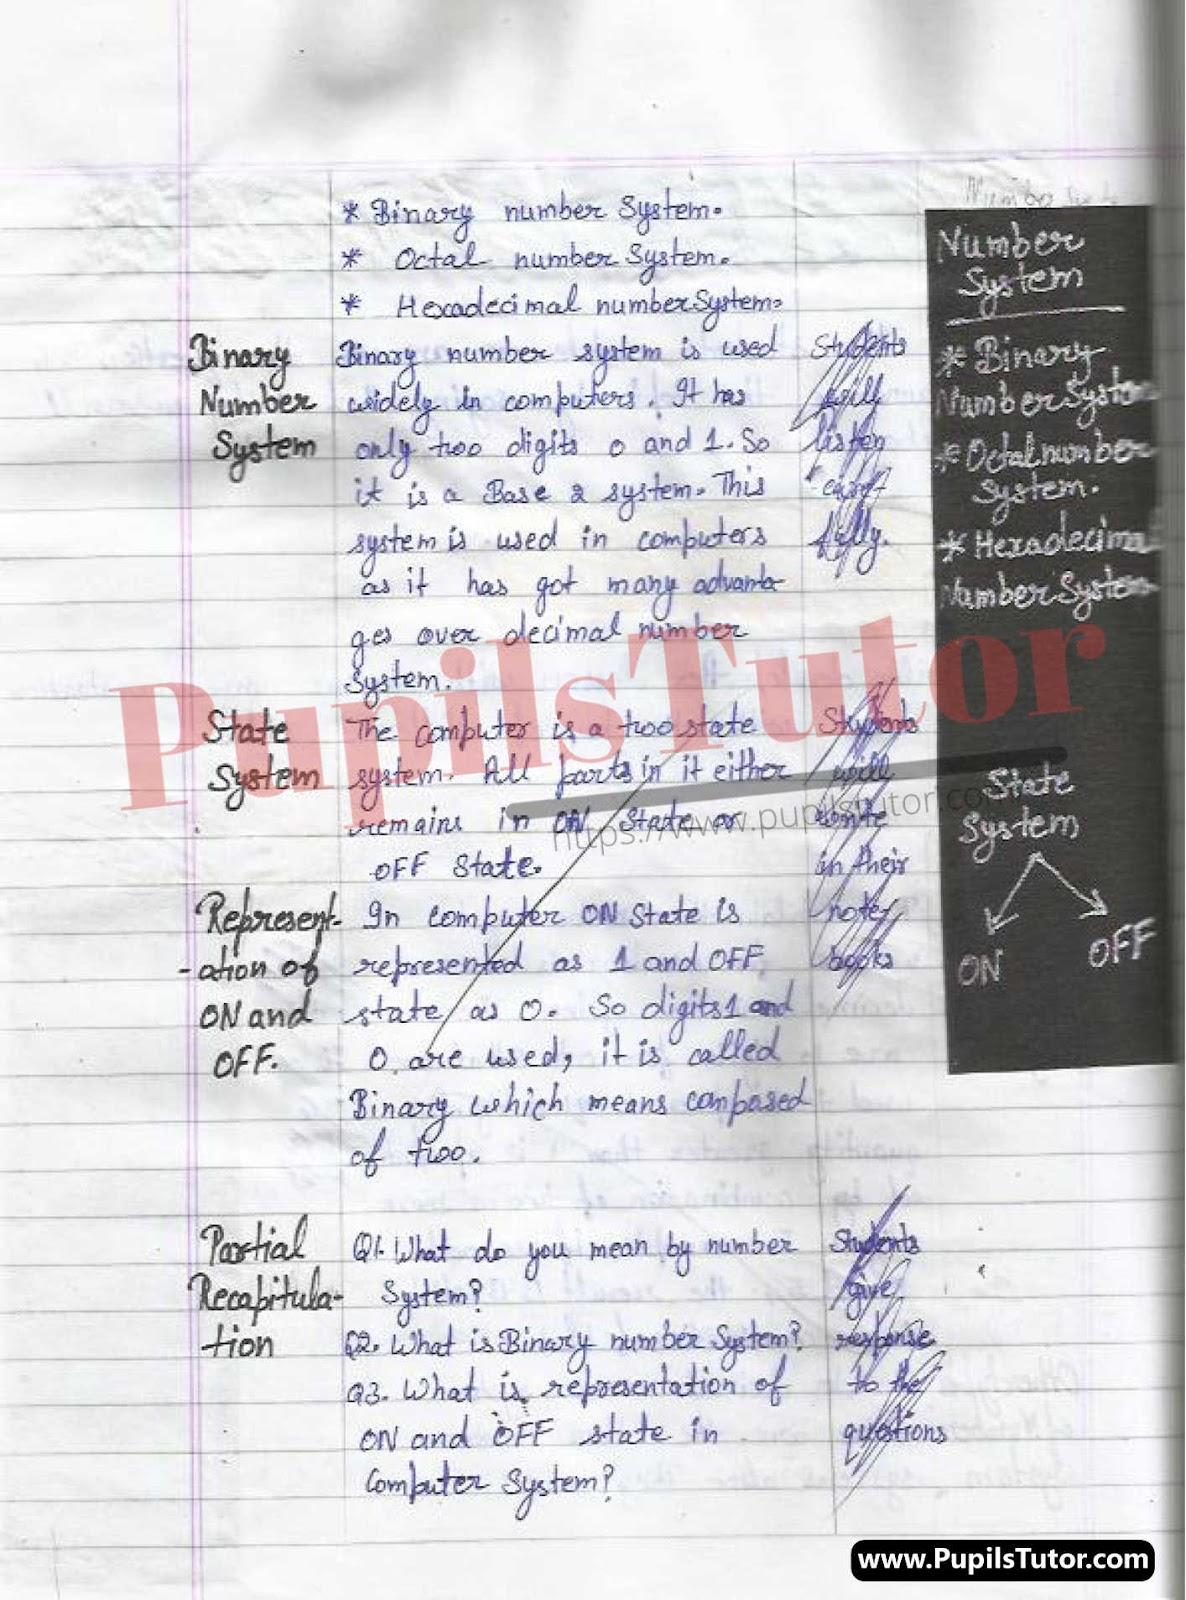 * Binary number System.
* Octal number System.
* Hexadecimal number System.
Binary
Number
System
Binary number system is used
widely in computers. It has
only two digits 0 and 1. So
it is a Base 2 system. This
system is used in computers
as it has got many advanta-
ges over decimal number
System.
Students
will
listen
care-
fully.
State
System
The computer is a two state
system. All parts in it either
remains in ON State or
OFF State.
Students
will
write
in their
note
books
Represent-
-ation of
ON and
OFF.
In computer ON State is
represented as 1 and OFF
state as 0. So digits 1 and
0 are used, it is called
Binary which means composed
of two.
Partial
Recapitula-
tion
Q1. What do you mean by number
System?
Q2. What is Binary number System?
Q3. What is representation of
ON and OFF state in
Computer System?
Students
give
response
to the
questions
Number
System
* Binary
Number System
* Octal number
System.
* Hexadecimal
Number System
State
System
ON
OFF
PupilsTutor
https://www.pupilstutor.co
www.PupilsTutor.com